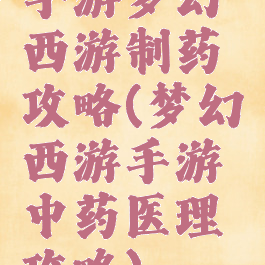 手游梦幻
西游制药
攻略(梦幻
西游手游
中药医理
攻略)